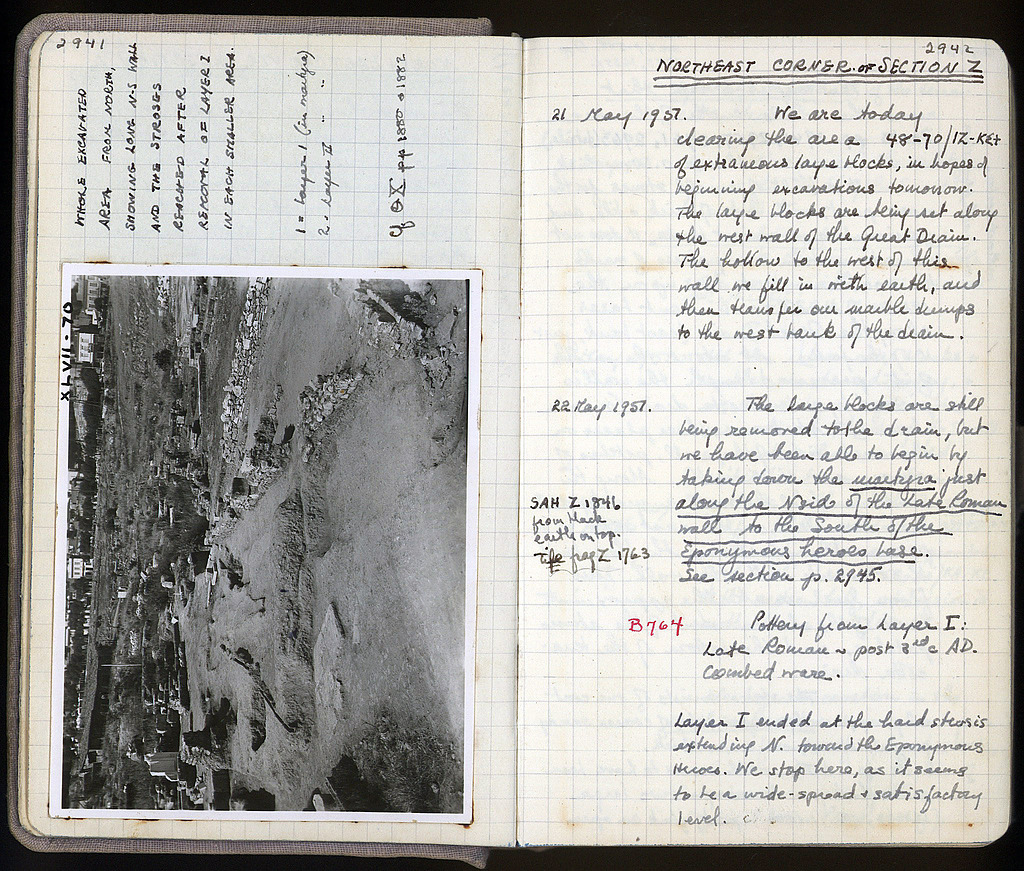 2941
WHOLE EXCAVATED
AREA FROM NORTH,
SHOWING LONG N-S WALL
AND THE STROSES
REACHED AFTER
REMOVAL OF LAYER I
IN EACH SMALLER AREA.
1 = Layer I (in martyra)
2 = Layer II " "
cf ΘΧ pp 1880 + 1882
XLVII-70
2942
NORTHEAST CORNER OF SECTION Z
21 May 1957. We are today
clearing the area 48-70/ΙΖ-ΚΣΤ
of extraneous large blocks, in hopes of
beginning excavations tomorrow.
The large blocks are being set along
the west wall of the Great Drain.
The hollow to the west of this
wall we fill in with earth, and
then transfer our marble dumps
to the west bank of the drain.
22 May 1957. The large blocks are still
being removed to the drain, but
we have been able to begin by
taking down the martyra just
along the N side of the Late Roman
wall to the South of the
Eponymous heroes base.
See section p. 2945.
SAH Z 1846
from black
earth on top.
Tile frag Z 1763
B764
Pottery from Layer I:
Late Roman ~ post 3rd c AD.
Combed ware.
Layer I ended at the hard strosis
extending N. toward the Eponymous
Heroes. We stop here, as it seems
to be a wide-spread + satisfactory
level.